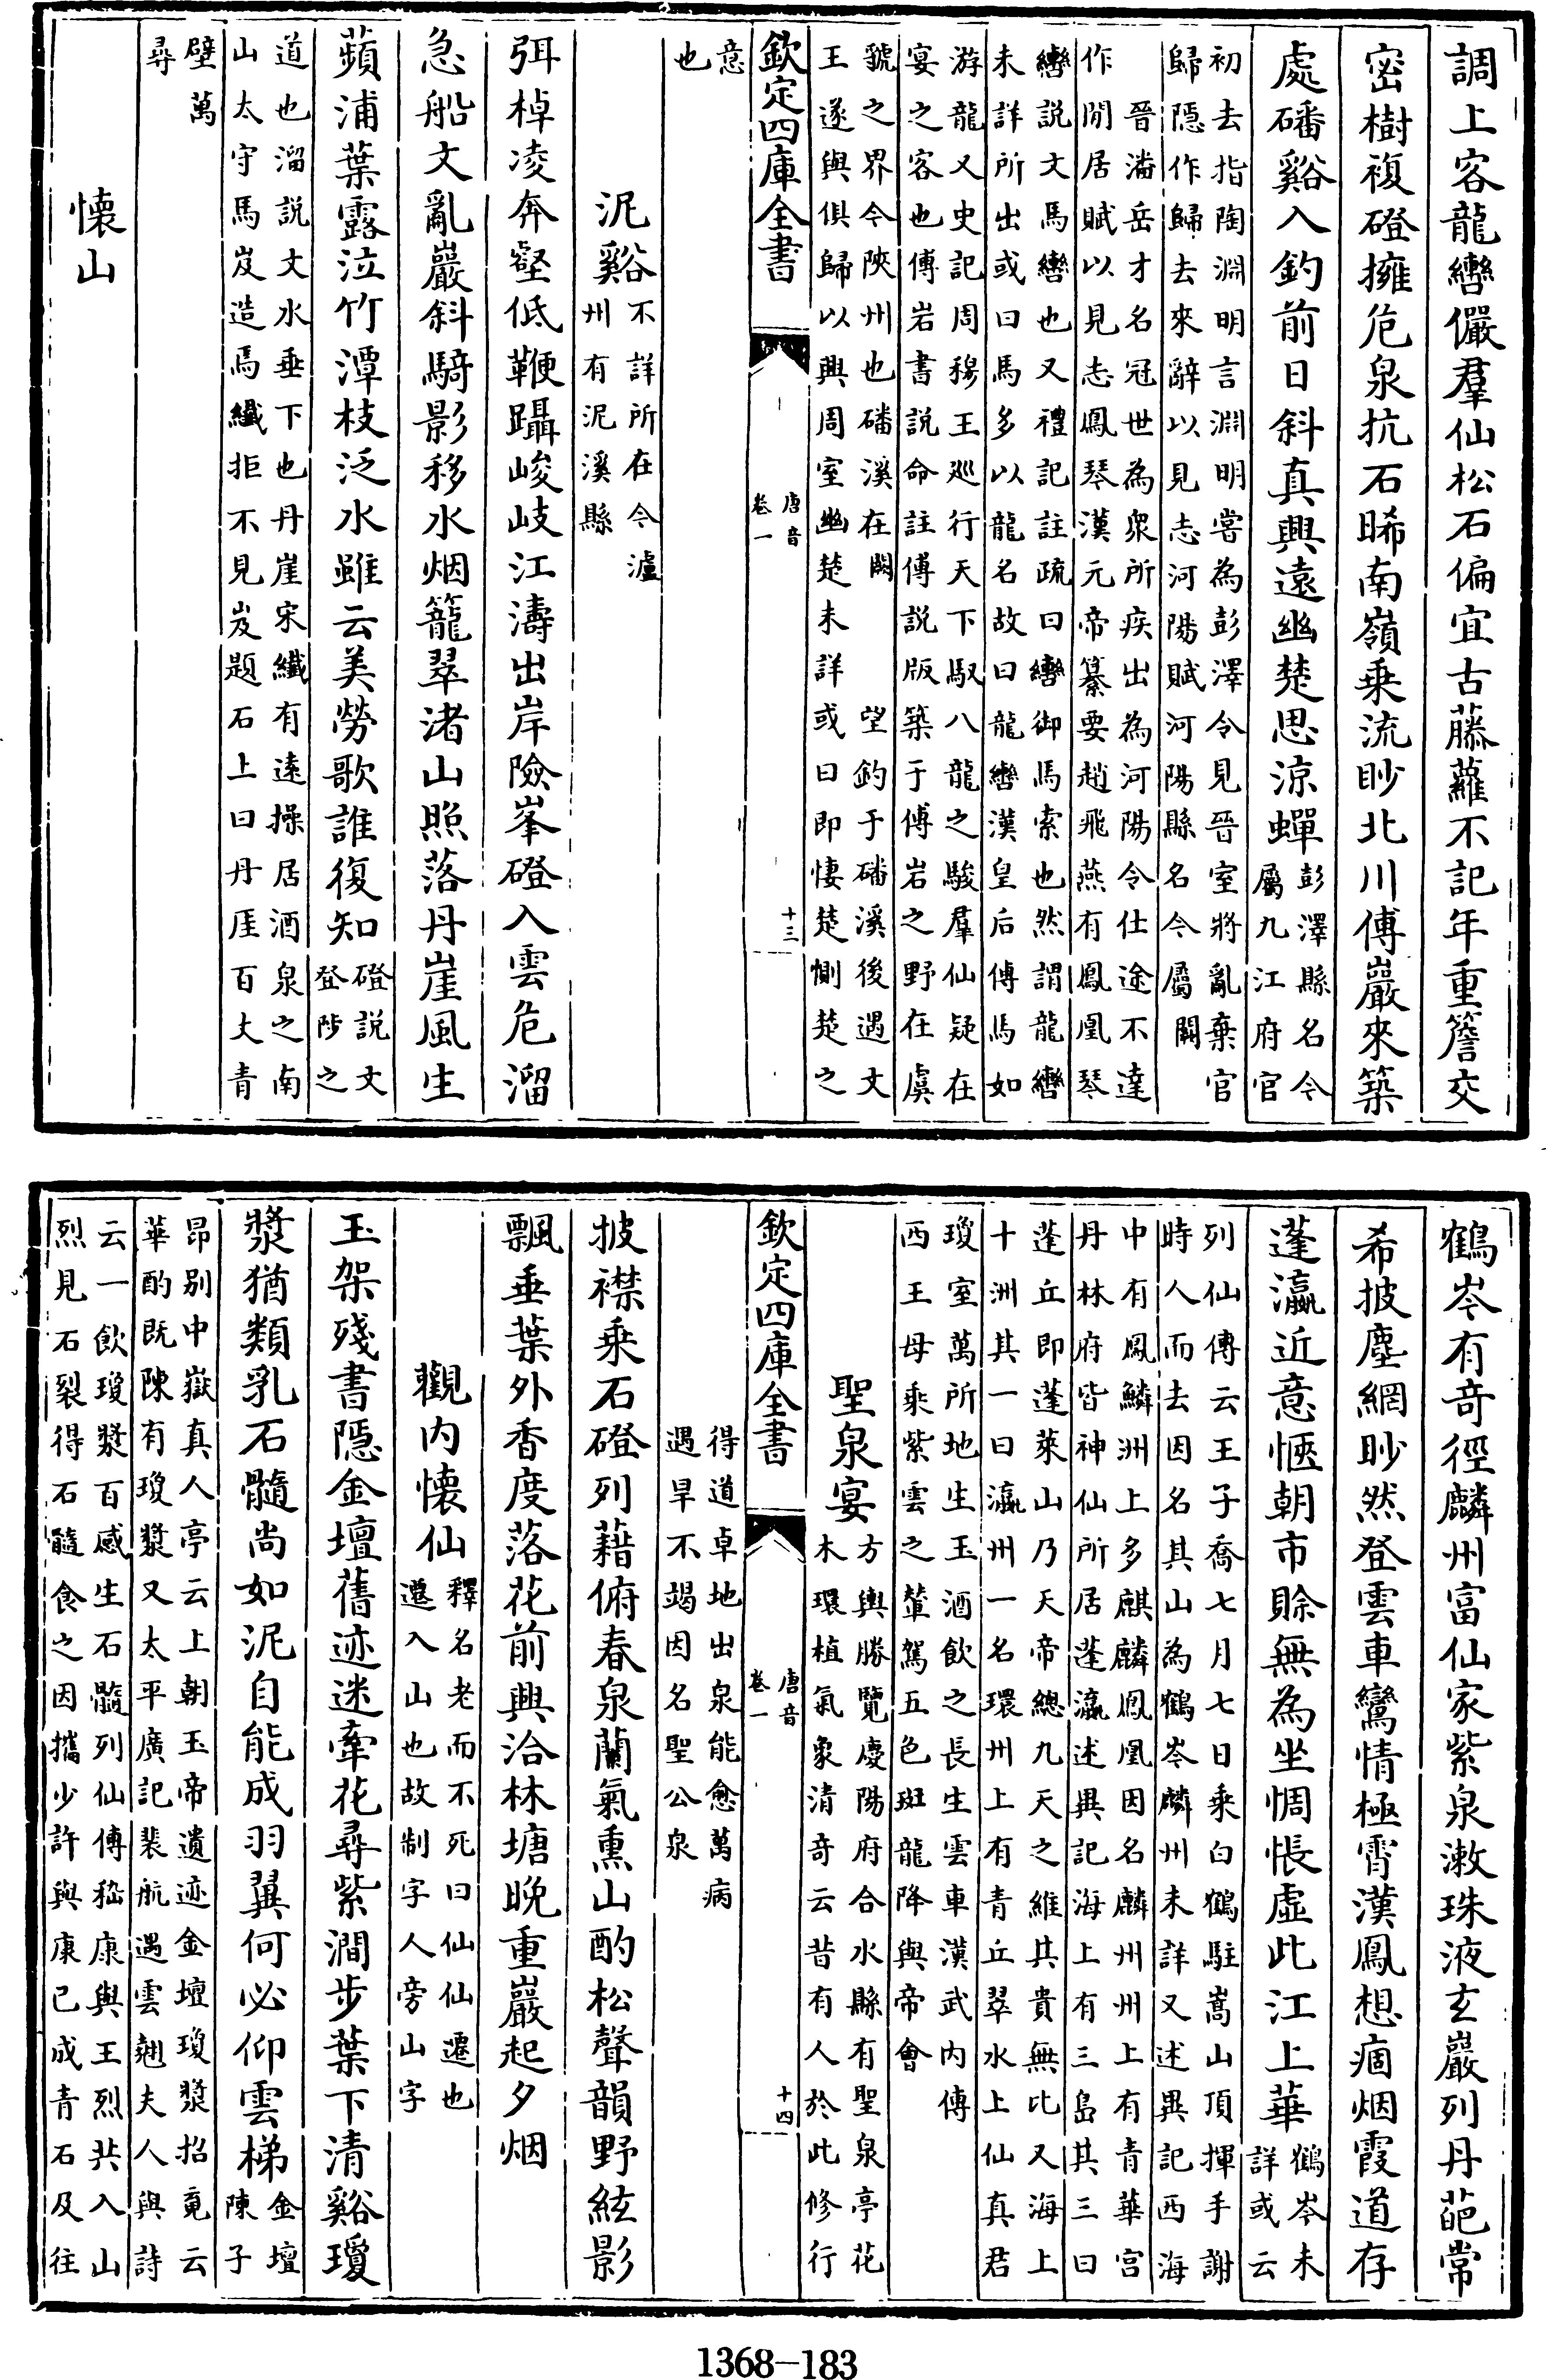 調上客龍轡儼羣仙松石偏宜古藤蘿不記年重簷交
密樹複磴擁危泉抗石晞南嶺乗流眇北川傅巖來築
處磻谿入釣前日斜真興遠幽楚思涼蟬彭澤縣名今
屬九江府官
初去指陶淵明言淵明嘗為彭澤令見晉室將亂棄官
歸隠作歸去來辭以見志河陽賦河陽縣名今屬闕
晉潘岳才名冠世為衆所疾出為河陽令仕途不達
作閒居賦以見志鳳琴漢元帝纂要趙飛燕有鳳凰琴
轡說文馬轡也又禮記註疏曰轡御馬索也然謂龍轡
未詳所出或曰馬多以龍名故曰龍轡漢皇后傅馬如
游龍又史記周穆王巡行天下馭八龍之駿羣仙疑在
宴之客也傅岩書說命註傅說版築于傅岩之野在虞
虢之界今陜州也磻溪在闕 望釣于磻溪後遇文
王遂與俱歸以興周室幽楚未詳或曰即悽楚惻楚之
欽定四庫全書
唐音
卷一
十三
意
也
泥谿不詳所在今瀘
州有泥溪縣
弭棹凌奔壑低鞭躡峻岐江濤出岸險峯磴入雲危溜
急船文亂巖斜騎影移水烟籠翠渚山照落丹崖風生
蘋浦葉露泣竹潭枝泛水雖云美勞歌誰復知磴說文
登陟之
道也溜說文水垂下也丹崖宋纖有逺操居酒泉之南
山太守馬岌造焉纖拒不見岌題石上曰丹厓百丈青
壁萬
尋
懐山
鶴岑有竒徑麟州富仙家紫泉漱珠液玄巖列丹葩常
希披塵網眇然登雲車鸞情極霄漢鳳想痼烟霞道存
蓬瀛近意愜朝市賖無為坐惆悵虚此江上華鶴岑未
詳或云
列仙傳云王子喬七月七日乗白鶴駐嵩山頂揮手謝
時人而去因名其山為鶴岑麟州未詳又述異記西海
中有鳳鱗洲上多麒麟鳳凰因名麟州州上有青華宫
丹林府皆神仙所居蓬瀛述異記海上有三島其三曰
蓬丘即蓬萊山乃天帝總九天之維其貴無比又海上
十洲其一曰瀛州一名環州上有青丘翠水上仙真君
瓊室萬所地生玉酒飲之長生雲車漢武内傳
西王母乘紫雲之輦駕五色斑龍降與帝會
聖泉宴方輿勝覽慶陽府合水縣有聖泉亭花
木環植氣象清奇云昔有人於此修行
欽定四庫全書
唐音
卷一
十四
得道卓地出泉能愈萬病
遇旱不竭因名聖公泉
披襟乗石磴列藉俯春泉蘭氣熏山酌松聲韻野絃影
飄垂葉外香度落花前興洽林塘晚重巖起夕烟
觀内懐仙釋名老而不死曰仙仙遷也
遷入山也故制字人旁山字
玉架殘書隠金壇舊迹迷牽花尋紫澗步葉下清谿瓊
漿猶類乳石髓尚如泥自能成羽翼何必仰雲梯金壇
陳子
昂别中嶽真人亭云上朝玉帝遺迹金壇瓊漿招䰟云
華酌既陳有瓊漿又太平廣記裴航遇雲翹夫人與詩
云一飲瓊漿百感生石髓列仙傳嵇康與王烈共入山
烈見石裂得石髓食之因擕少許與康已成青石及往
1368-183